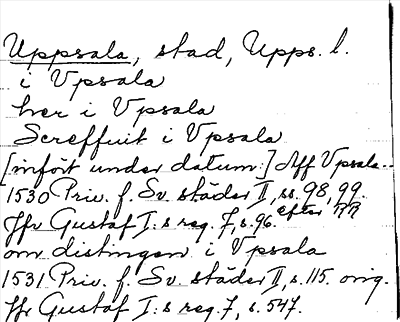 Uppsala, stad, Upps. l.
i Vpsala
her i Vpsala
Screffuit i Vpsala
[infört under datum:] Aff Vpsala..
1530 Priv. f. Sv. städer II, ss. 98, 99.
Jfr Gustaf I:s reg. 7, s. 96. efter RR
om distingen i Vpsala
1531 Priv. f. Sv. städer II, s. 115. orig.
Jfr Gustaf I:s reg. 7, s. 547.